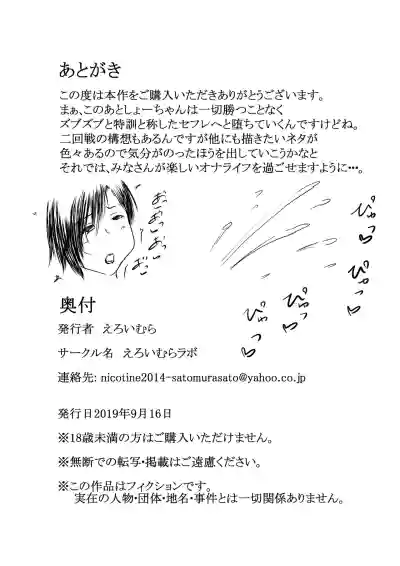 あとがき
この度は本作をご購入いただきありがとうございます。
まぁ、このあとしょーちゃんは一切勝つことなく
ズブズブと特訓と称したセフレへと堕ちていくんですけどね。
二回戦の構想もあるんですが他にも描きたいネタが
色々あるので気分がのったほうを出していこうかなと
それでは、みなさんが楽しいオナライフを過ごせますように・・・。
ぴゅっ♡
ぴゅっ♡
ぴゅっ♡
ぴゅっ♡
奥付
発行者 えろいむら
サークル名 えろいむらラボ
連絡先: nicotine2014-satomurasato@yahoo.co.jp
発行日2019年9月16日
※18歳未満の方はご購入いただけません。
※無断での転写・掲載はご遠慮ください。
※この作品はフィクションです。
実在の人物・団体・地名・事件とは一切関係ありません。